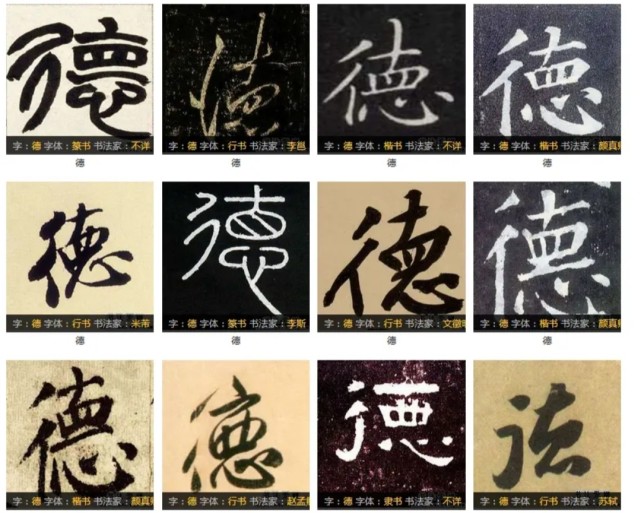 德 德 德 德
字：德 字体：篆书 书法家：不详 字：德 字体：行书 书法家：李邕 字：德 字体：楷书 书法家：不详 字：德 字体：楷书 书法家：颜真卿
德 德 德 德
德 德 德 德
字：德 字体：行书 书法家：米芾 字：德 字体：篆书 书法家：李斯 字：德 字体：行书 书法家：文徵 字：德 字体：楷书 书法家：颜真
德 德 德
德 德 德 德
字：德 字体：楷书 书法家：颜真 字：德 字体：行书 书法家：赵孟 字：德 字体：隶书 书法家：不详 字：德 字体：行书 书法家：苏轼